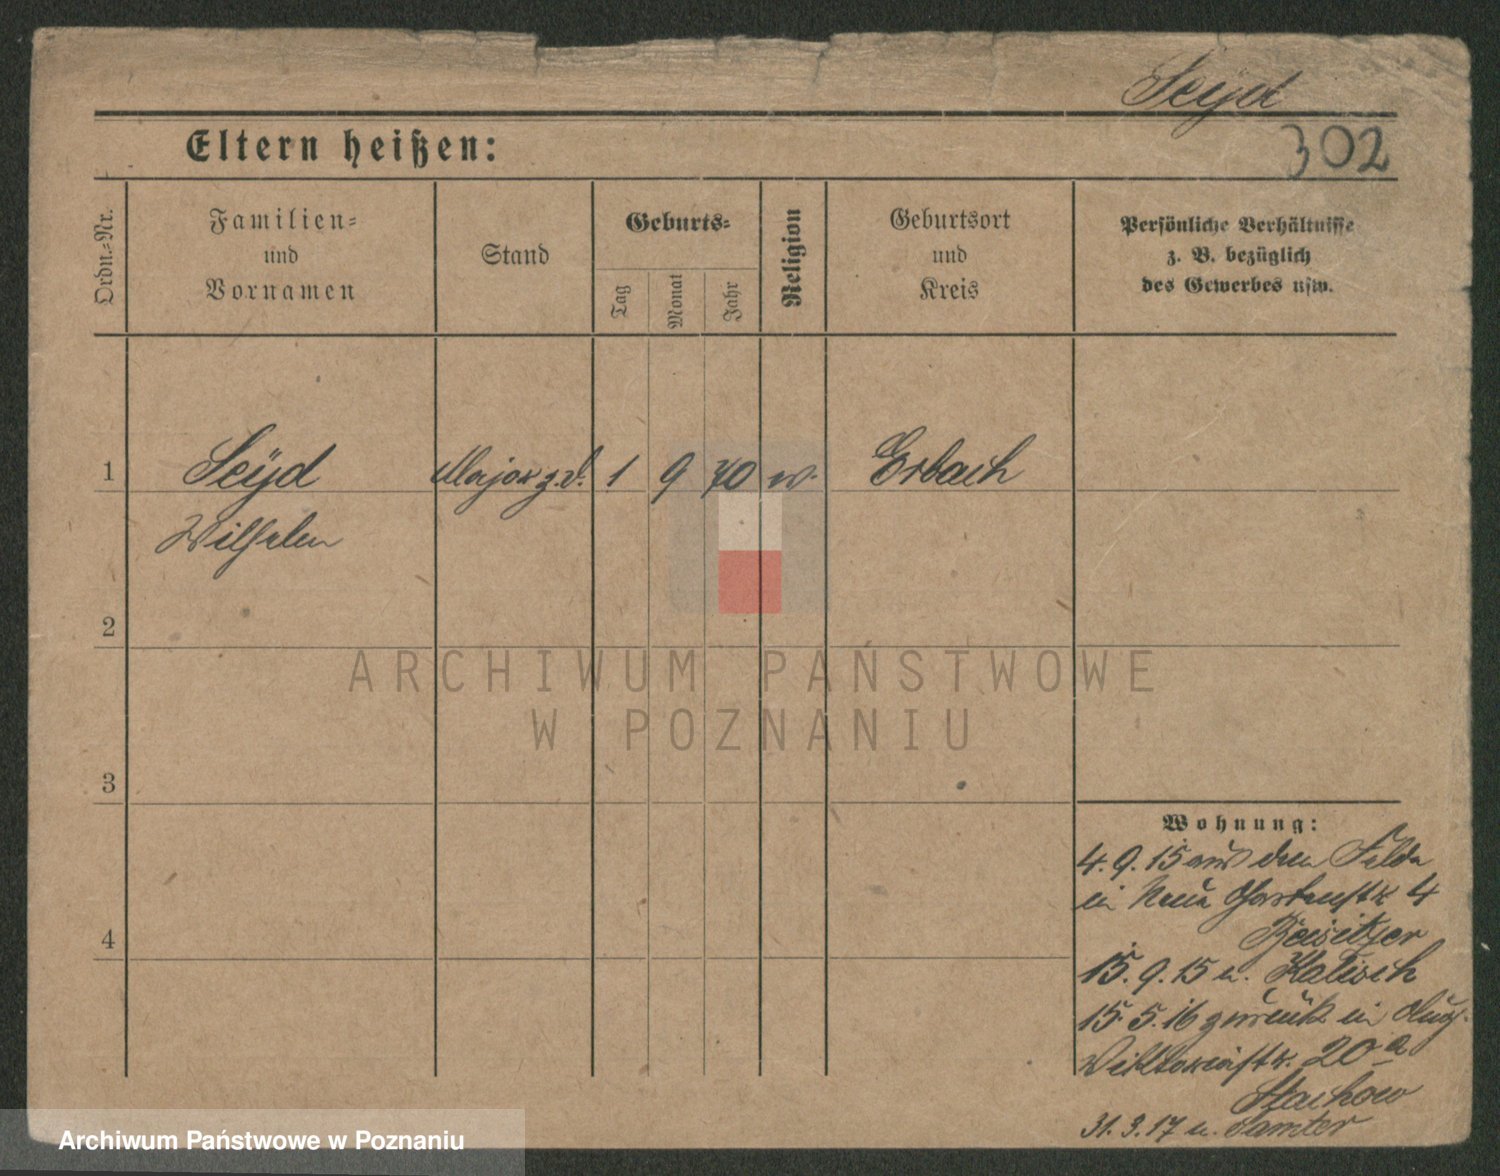 Seÿd
Eltern heißen:
302
Ordn.-Nr.
Familien-
und
Vornamen
Stand
Geburts-
Tag
Monat
Jahr
Religion
Geburtsort
und
Kreis
Persönliche Verhältnisse
z. B. bezüglich
des Gewerbes usw.
1
Seÿd
Major z. D.
1
9
70
w.
Erbach
Wilhelm
2
3
4
ARCHIWUM PAŃSTWOWE
W POZNANIU
Wohnung:
4. 9. 15 aus dem Felde
in Neue Gartenstr 4
Beisitzer
15. 9. 15 n. Kalisch
15. 5. 16 zurück in Aug.
Viktoriastr. 20a
Stachow
31. 3. 17 n. Samter
Archiwum Państwowe w Poznaniu